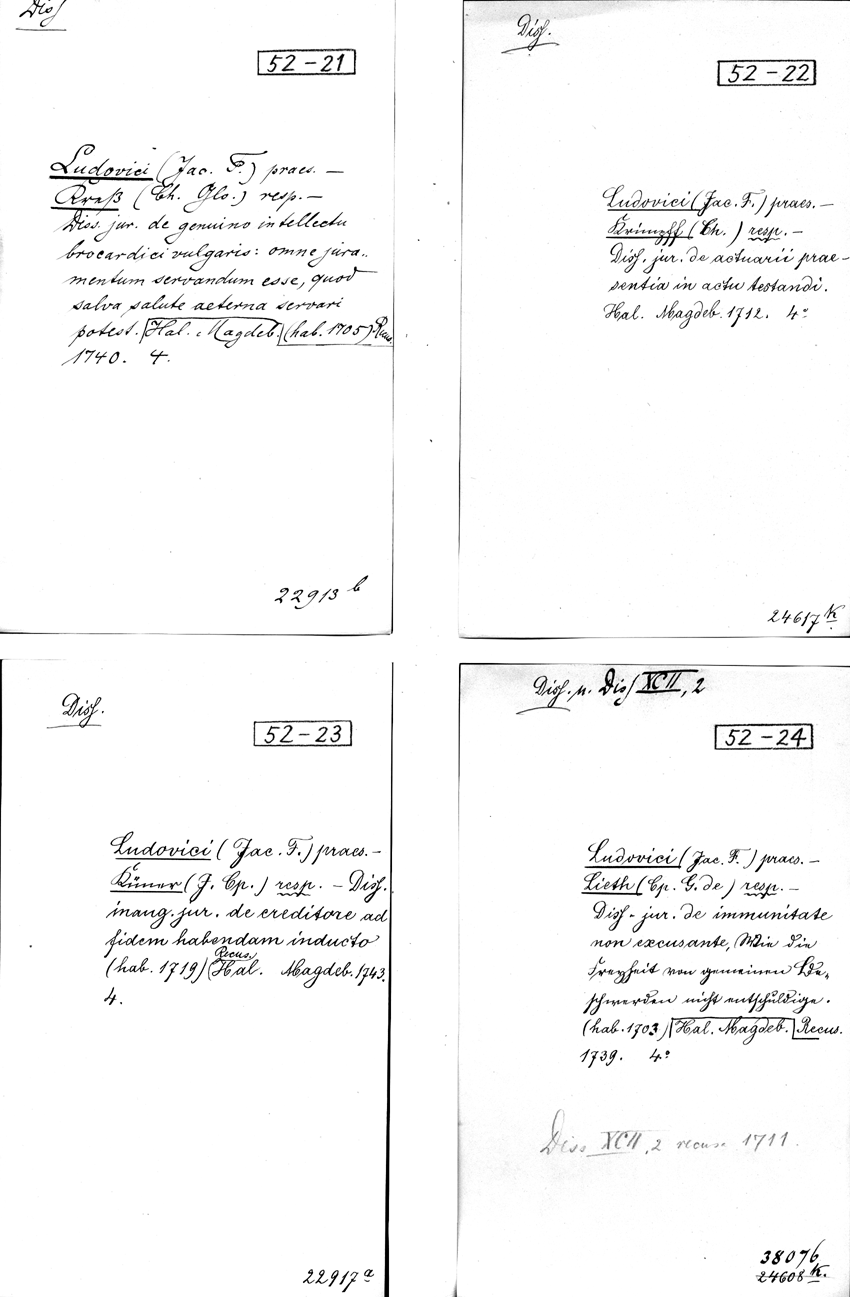 Diss
52-21
Ludovici (Jac. F.) praes. —
Kreß (Ch. Glo.) resp. —
Diss. jur. de genuino intellectu
brocardici vulgaris: omne jura-
mentum servandum esse, quod
salva salute aeterna servari
potest. Hal. Magdeb. (hab. 1705) Recus.
1740. 4.
22913 b
Diss.
52-22
Ludovici (Jac. F.) praes. —
Krimpff (Ch.) resp. —
Diss. jur. de actuarii prae-
sentia in actu testandi.
Hal. Magdeb. 1712. 4°
24617 K.
Diss.
52-23
Ludovici (Jac. F.) praes. —
Küner (J. Cp.) resp. — Diss.
inaug. jur. de creditore ad
fidem habendam inducto
(hab. 1719) Recus. Hal. Magdeb. 1743.
4.
22917 a
Diss. u. Diss XCII, 2
52-24
Ludovici (Jac. F.) praes. —
Lieth (Cp. G. de) resp. —
Diss. jur. de immunitate
non excusante, Wie die
Freyheit von gemeinen
schwerden nicht entschuldige.
(hab. 1703) Hal. Magdeb. Recus.
1739. 4°
Diss XCII, 2 recuse 1711.
38076
24608 K.